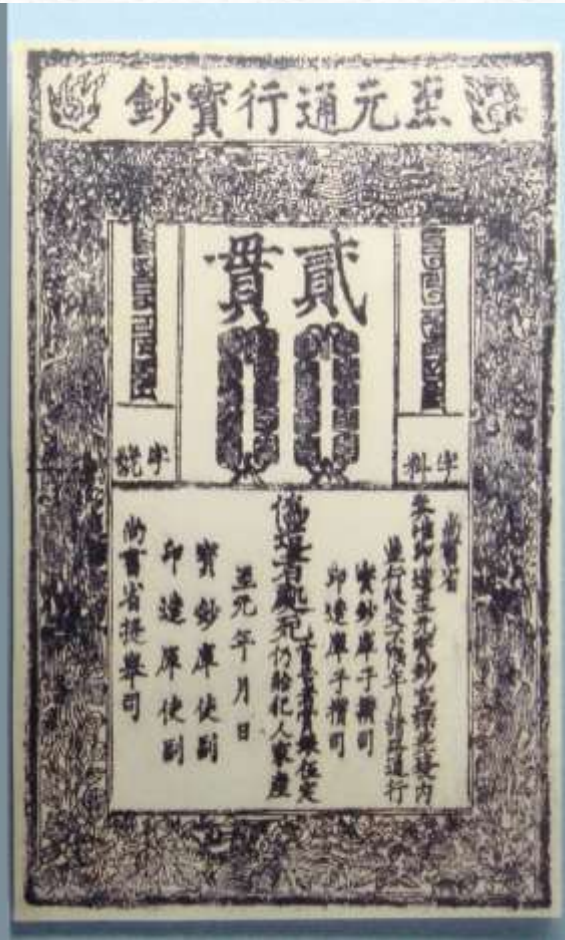 至元通行寶鈔
貳貫
字料
字號
尚書省
奏准印造至元寶鈔宣課差役內
並行收受不限年月諸路通行
寶鈔庫子攢司
印造庫子攢司
偽造者處死首告者賞銀伍定仍給犯人家產
至元年月日
寶鈔庫使副
印造庫使副
尚書省提舉司